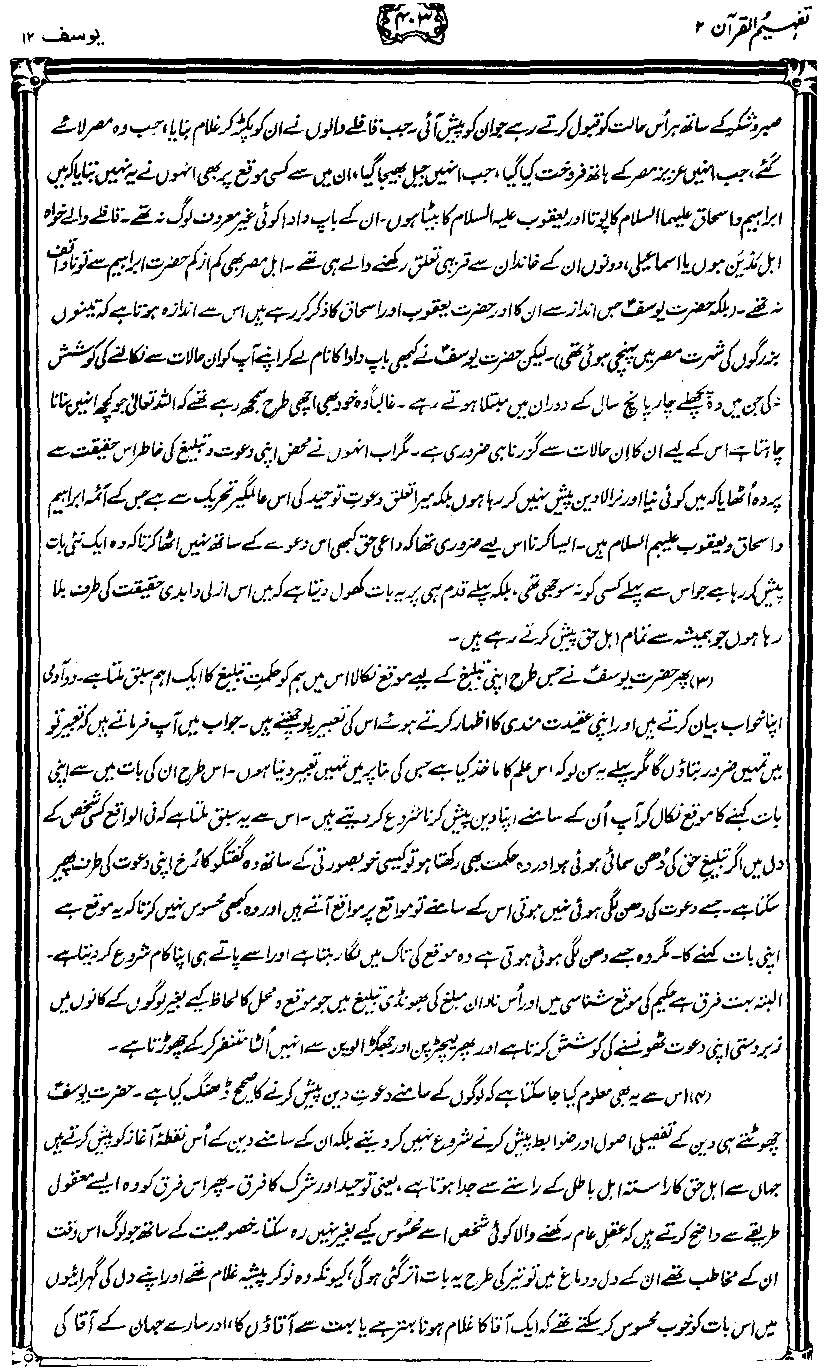 تفہیم القرآن ۲
۴۰۳
یوسف ۱۲
صبر و شکر کے ساتھ ہر اُس حالت کو قبول کرتے رہے جو ان کو پیش آئی۔ جب قافلے والوں نے ان کو پکڑ کر غلام بنایا، جب وہ مصر لائے
گئے، جب انہیں عزیز مصر کے ہاتھ فروخت کیا گیا، جب انہیں جیل بھیجا گیا، ان میں سے کسی موقع پر بھی انہوں نے یہ نہیں بتایا کہ میں
ابراہیم و اسحاق علیہما السلام کا پوتا اور یعقوب علیہ السلام کا بیٹا ہوں۔ ان کے باپ دادا کوئی غیر معروف لوگ نہ تھے۔ قافلے والے خواہ
اہل مَدْیَن ہوں یا اسماعیلی، دونوں ان کے خاندان سے قریبی تعلق رکھنے والے ہی تھے۔ اہل مصر بھی کم از کم حضرت ابراہیم سے تو ناواقف
نہ تھے۔ (بلکہ حضرت یوسفؑ جس انداز سے ان کا اور حضرت یعقوب اور اسحاق کا ذکر کر رہے ہیں اس سے اندازہ ہوتا ہے کہ تینوں
بزرگوں کی شہرت مصر میں پہنچی ہوئی تھی)۔ لیکن حضرت یوسفؑ نے کبھی باپ دادا کا نام لے کر اپنے آپ کو ان حالات سے نکالنے کی کوشش
نہ کی جن میں وہ پچھلے چار پانچ سال کے دوران میں مبتلا ہوتے رہے۔ غالباً وہ خود بھی اچھی طرح سمجھ رہے تھے کہ اللہ تعالیٰ جو کچھ انہیں بنانا
چاہتا ہے اس کے لیے ان کا اِن حالات سے گزرنا ہی ضروری ہے۔ مگر اب انہوں نے محض اپنی دعوت و تبلیغ کی خاطر اس حقیقت سے
پردہ اُٹھایا کہ میں کوئی نیا اور نرالا دین پیش نہیں کر رہا ہوں بلکہ میرا تعلق دعوتِ توحید کی اس عالمگیر تحریک سے ہے جس کے ائمہ ابراہیم
و اسحاق و یعقوب علیہم السلام ہیں۔ ایسا کرنا اس لیے ضروری تھا کہ داعی حق کبھی اس دعوے کے ساتھ نہیں اٹھا کرتا کہ وہ ایک نئی بات
پیش کر رہا ہے جو اس سے پہلے کسی کو نہ سوجھی تھی، بلکہ پہلے قدم ہی پر یہ بات کھول دیتا ہے کہ میں اس ازلی و ابدی حقیقت کی طرف بلا
رہا ہوں جو ہمیشہ سے تمام اہل حق پیش کرتے رہے ہیں۔
(۳) پھر حضرت یوسفؑ نے جس طرح اپنی تبلیغ کے لیے موقع نکالا اس میں ہم کو حکمتِ تبلیغ کا ایک اہم سبق ملتا ہے۔ دو آدمی
اپنا خواب بیان کرتے ہیں اور اپنی عقیدت مندی کا اظہار کرتے ہوئے اس کی تعبیر پوچھتے ہیں۔ جواب میں آپ فرماتے ہیں کہ تعبیر تو
میں تمہیں ضرور بتاؤں گا مگر پہلے یہ سن لو کہ اس علم کا ماخذ کیا ہے جس کی بنا پر میں تمہیں تعبیر دیتا ہوں۔ اس طرح ان کی بات میں سے اپنی
بات کہنے کا موقع نکال کر آپ اُن کے سامنے اپنا دین پیش کرنا شروع کر دیتے ہیں۔ اس سے یہ سبق ملتا ہے کہ فی الواقع کسی شخص کے
دل میں اگر تبلیغِ حق کی دُھن سمائی ہوئی ہو اور وہ حکمت بھی رکھتا ہو تو کیسی خوبصورتی کے ساتھ وہ گفتگو کا رُخ اپنی دعوت کی طرف پھیر
سکتا ہے۔ جسے دعوت کی دھن لگی ہوئی نہیں ہوتی اس کے سامنے تو مواقع پر مواقع آتے ہیں اور وہ کبھی محسوس نہیں کرتا کہ یہ موقع ہے
اپنی بات کہنے کا۔ مگر وہ جسے دھن لگی ہوئی ہوتی ہے وہ موقع کی تاک میں لگا رہتا ہے اور اسے پاتے ہی اپنا کام شروع کر دیتا ہے۔
البتہ بہت فرق ہے حکیم کی موقع شناسی میں اور اُس نادان مبلغ کی بھونڈی تبلیغ میں جو موقع و محل کا لحاظ کیے بغیر لوگوں کے کانوں میں
زبردستی اپنی دعوت ٹھونسنے کی کوشش کرتا ہے اور پھر لیچڑپن اور جھگڑالو پن سے انہیں اُلٹا متنفر کر کے چھوڑتا ہے۔
(۴) اس سے یہ بھی معلوم کیا جا سکتا ہے کہ لوگوں کے سامنے دعوتِ دین پیش کرنے کا صحیح ڈھنگ کیا ہے۔ حضرت یوسفؑ
چھوٹتے ہی دین کے تفصیلی اصول اور ضوابط پیش کرنے شروع نہیں کر دیتے بلکہ ان کے سامنے دین کے اُس نقطۂ آغاز کو پیش کرتے ہیں
جہاں سے اہل حق کا راستہ اہل باطل کے راستے سے جدا ہوتا ہے، یعنی توحید اور شرک کا فرق۔ پھر اس فرق کو وہ ایسے معقول
طریقے سے واضح کرتے ہیں کہ عقلِ عام رکھنے والا کوئی شخص اسے محسوس کیے بغیر نہیں رہ سکتا۔ خصوصیت کے ساتھ جو لوگ اس وقت
ان کے مخاطب تھے ان کے دل و دماغ میں تو تیر کی طرح یہ بات اتر گئی ہو گی، کیونکہ وہ نوکر پیشہ غلام تھے اور اپنے دل کی گہرائیوں
میں اس بات کو خوب محسوس کر سکتے تھے کہ ایک آقا کا غلام ہونا بہتر ہے یا بہت سے آقاؤں کا، اور سارے جہان کے آقا کی